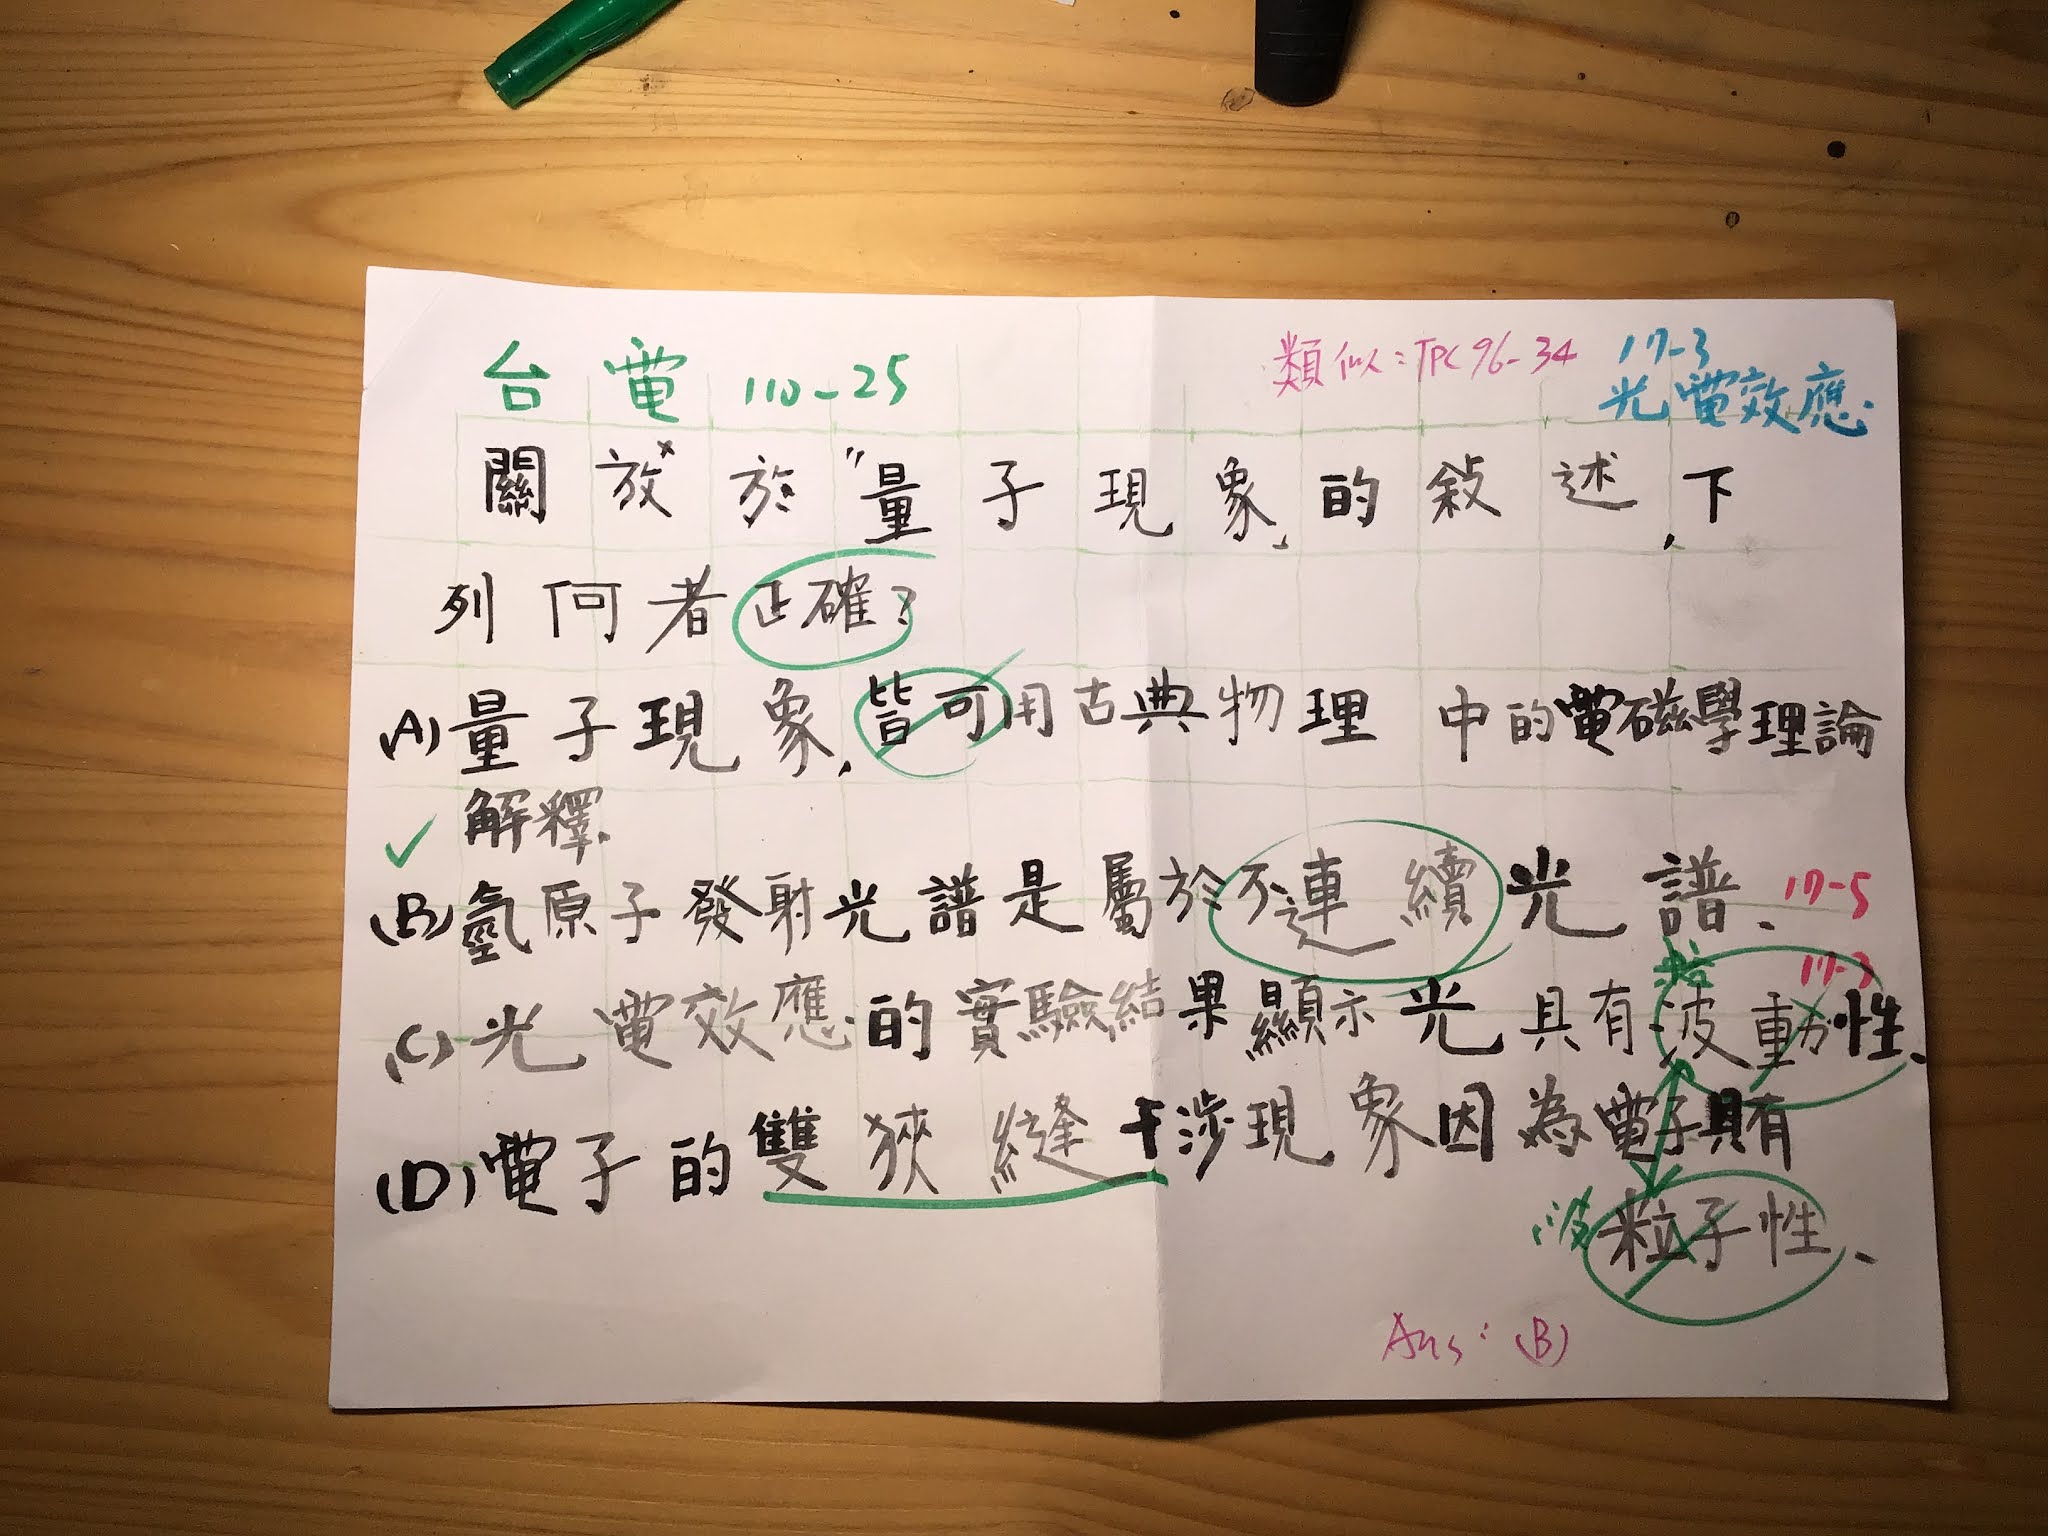 台電 110-25
類似:TPC96-34
17-3
光電效應
關放×於"量子現象"的敘述,下
列何者正確?
(A)量子現象,皆可用古典物理 中的電磁學理論
解釋.
✓
(B)氫原子發射光譜是屬於不連續光譜、17-5
粒 17-3
(C)光電效應的實驗結果顯示光具有波動性、
(D)電子的雙狹縫干涉現象因為電子具有
波 粒子性、
Ans:(B)